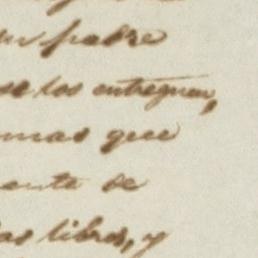 un padre
se los entreguen,
mas que
ente de
los libros, y